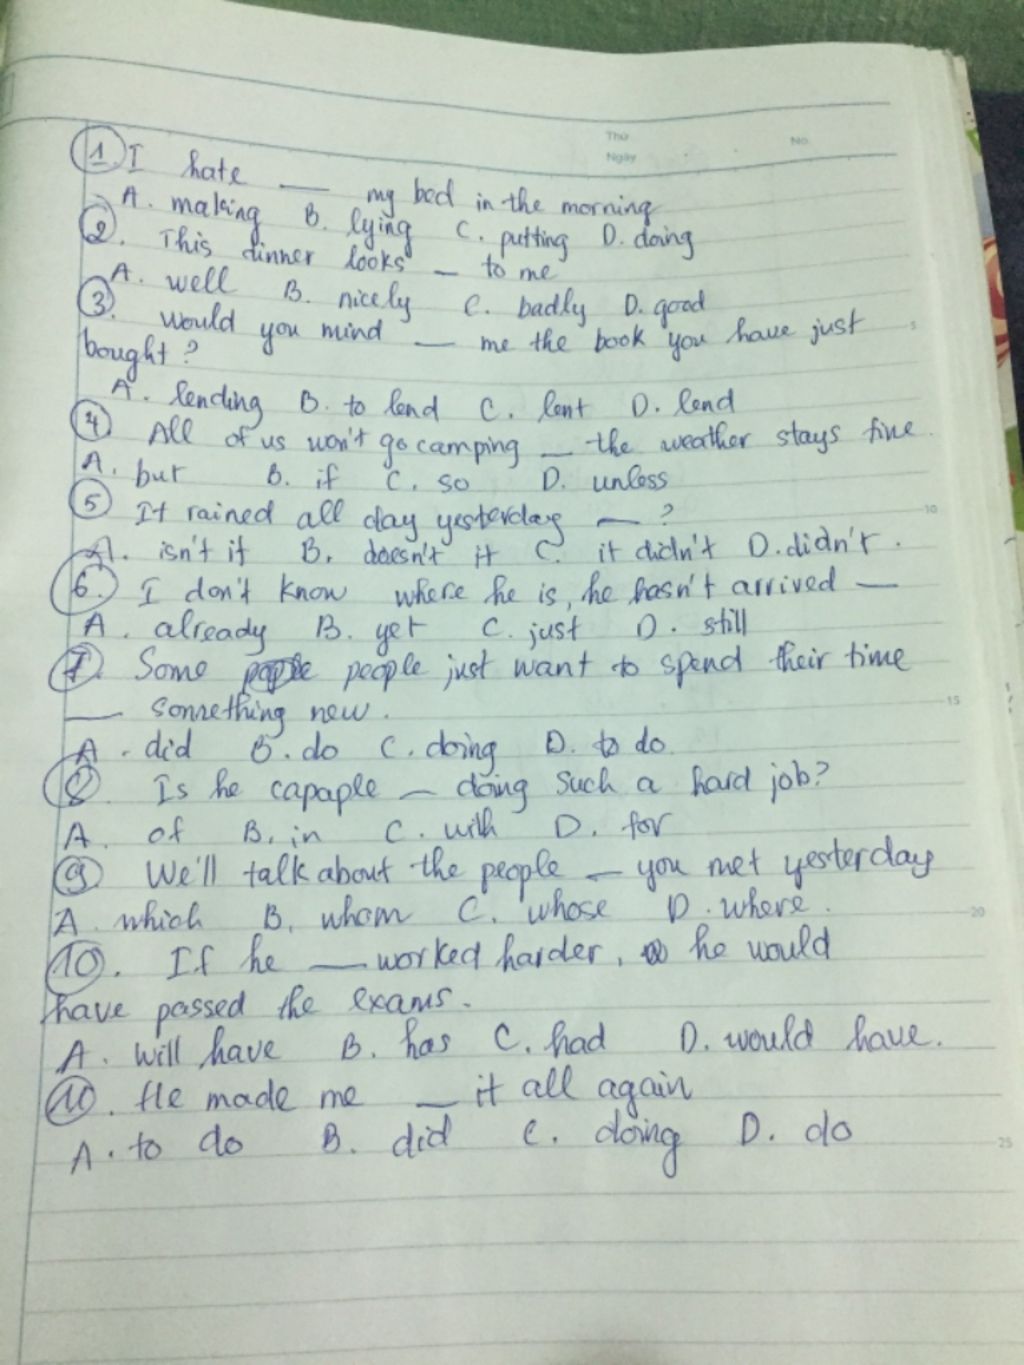 Thứ
Ngày
No.
1. I hate ___ my bed in the morning
A. making B. lying C. putting D. doing
2. This dinner looks ___ to me
A. well B. nicely C. badly D. good
3. Would you mind ___ me the book you have just
bought?
A. lending B. to lend C. lent D. lend
4. All of us won't go camping ___ the weather stays fine.
A. but B. if C. so D. unless
5 It rained all day yesterday ___ ?
A. isn't it B. doesn't it C. it didn't D. didn't.
6. I don't know where he is, he hasn't arrived ___
A. already B. yet C. just D. still
7. Some people just want to spend their time
___ something new.
A. did B. do C. doing D. to do.
8. Is he capaple ___ doing such a hard job?
A. of B. in C. with D. for
9 We'll talk about the people ___ you met yesterday
A. which B. whom C. whose D. where.
10. If he ___ worked harder, he would
have passed the exams.
A. will have B. has C. had D. would have.
10. He made me ___ it all again
A. to do B. did C. doing D. do
5
10
15
20
25